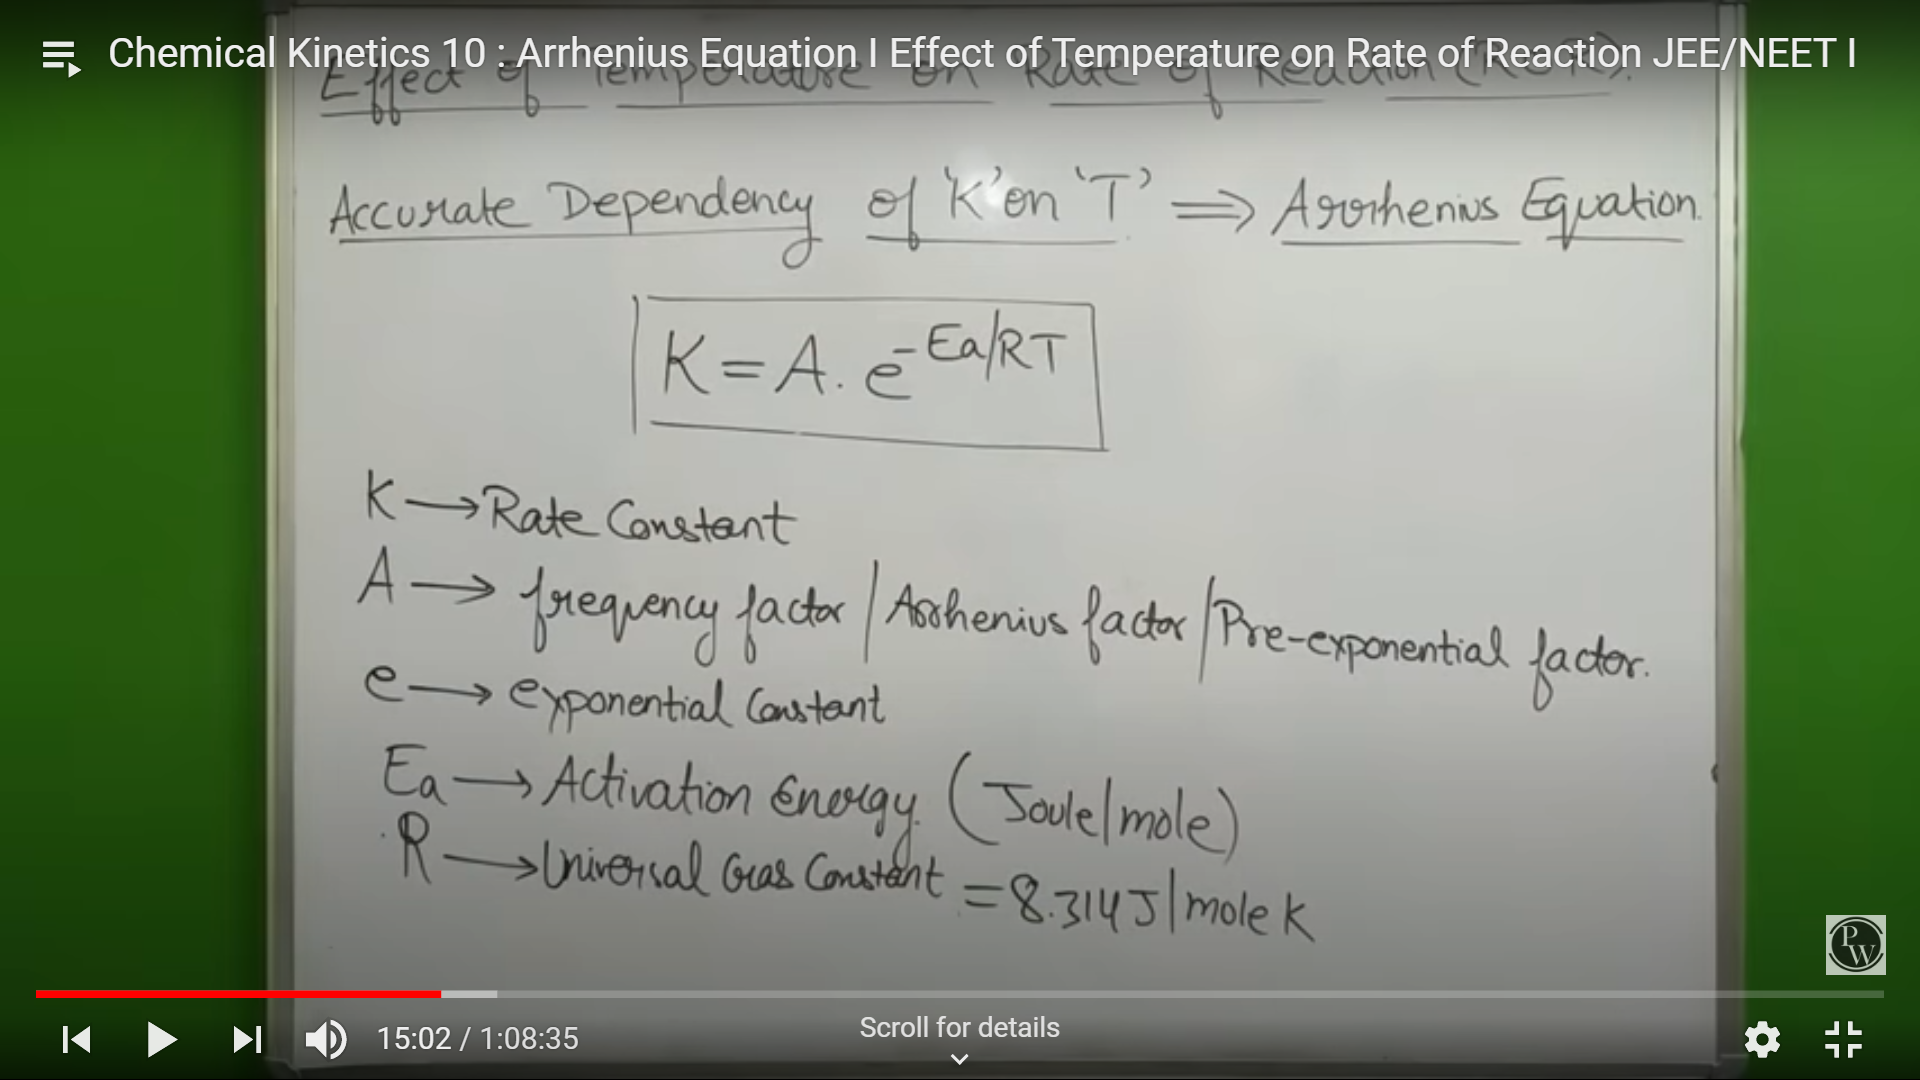 Chemical Kinetics 10 : Arrhenius Equation I Effect of Temperature on Rate of Reaction JEE/NEET I
Effect of Temperature on Rate of Reaction (ROR).
Accurate Dependency of 'K' on 'T' ⟹ Arrhenius Equation.
K = A. e^-Ea/RT
K → Rate Constant
A → frequency factor / Arrhenius factor / Pre-exponential factor.
e → exponential Constant
Ea → Activation Energy. (Joule/mole)
R → Universal Gas Constant = 8.314 J/mole K
PW
15:02 / 1:08:35
Scroll for details